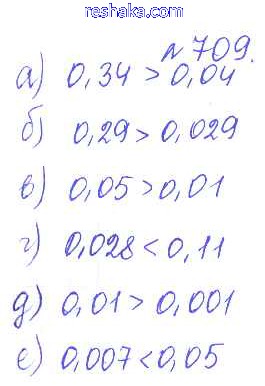 reshaka.com
№ 709.
а) 0,34 > 0,04
б) 0,29 > 0,029
в) 0,05 > 0,01
г) 0,028 < 0,11
д) 0,01 > 0,001
е) 0,007 < 0,05